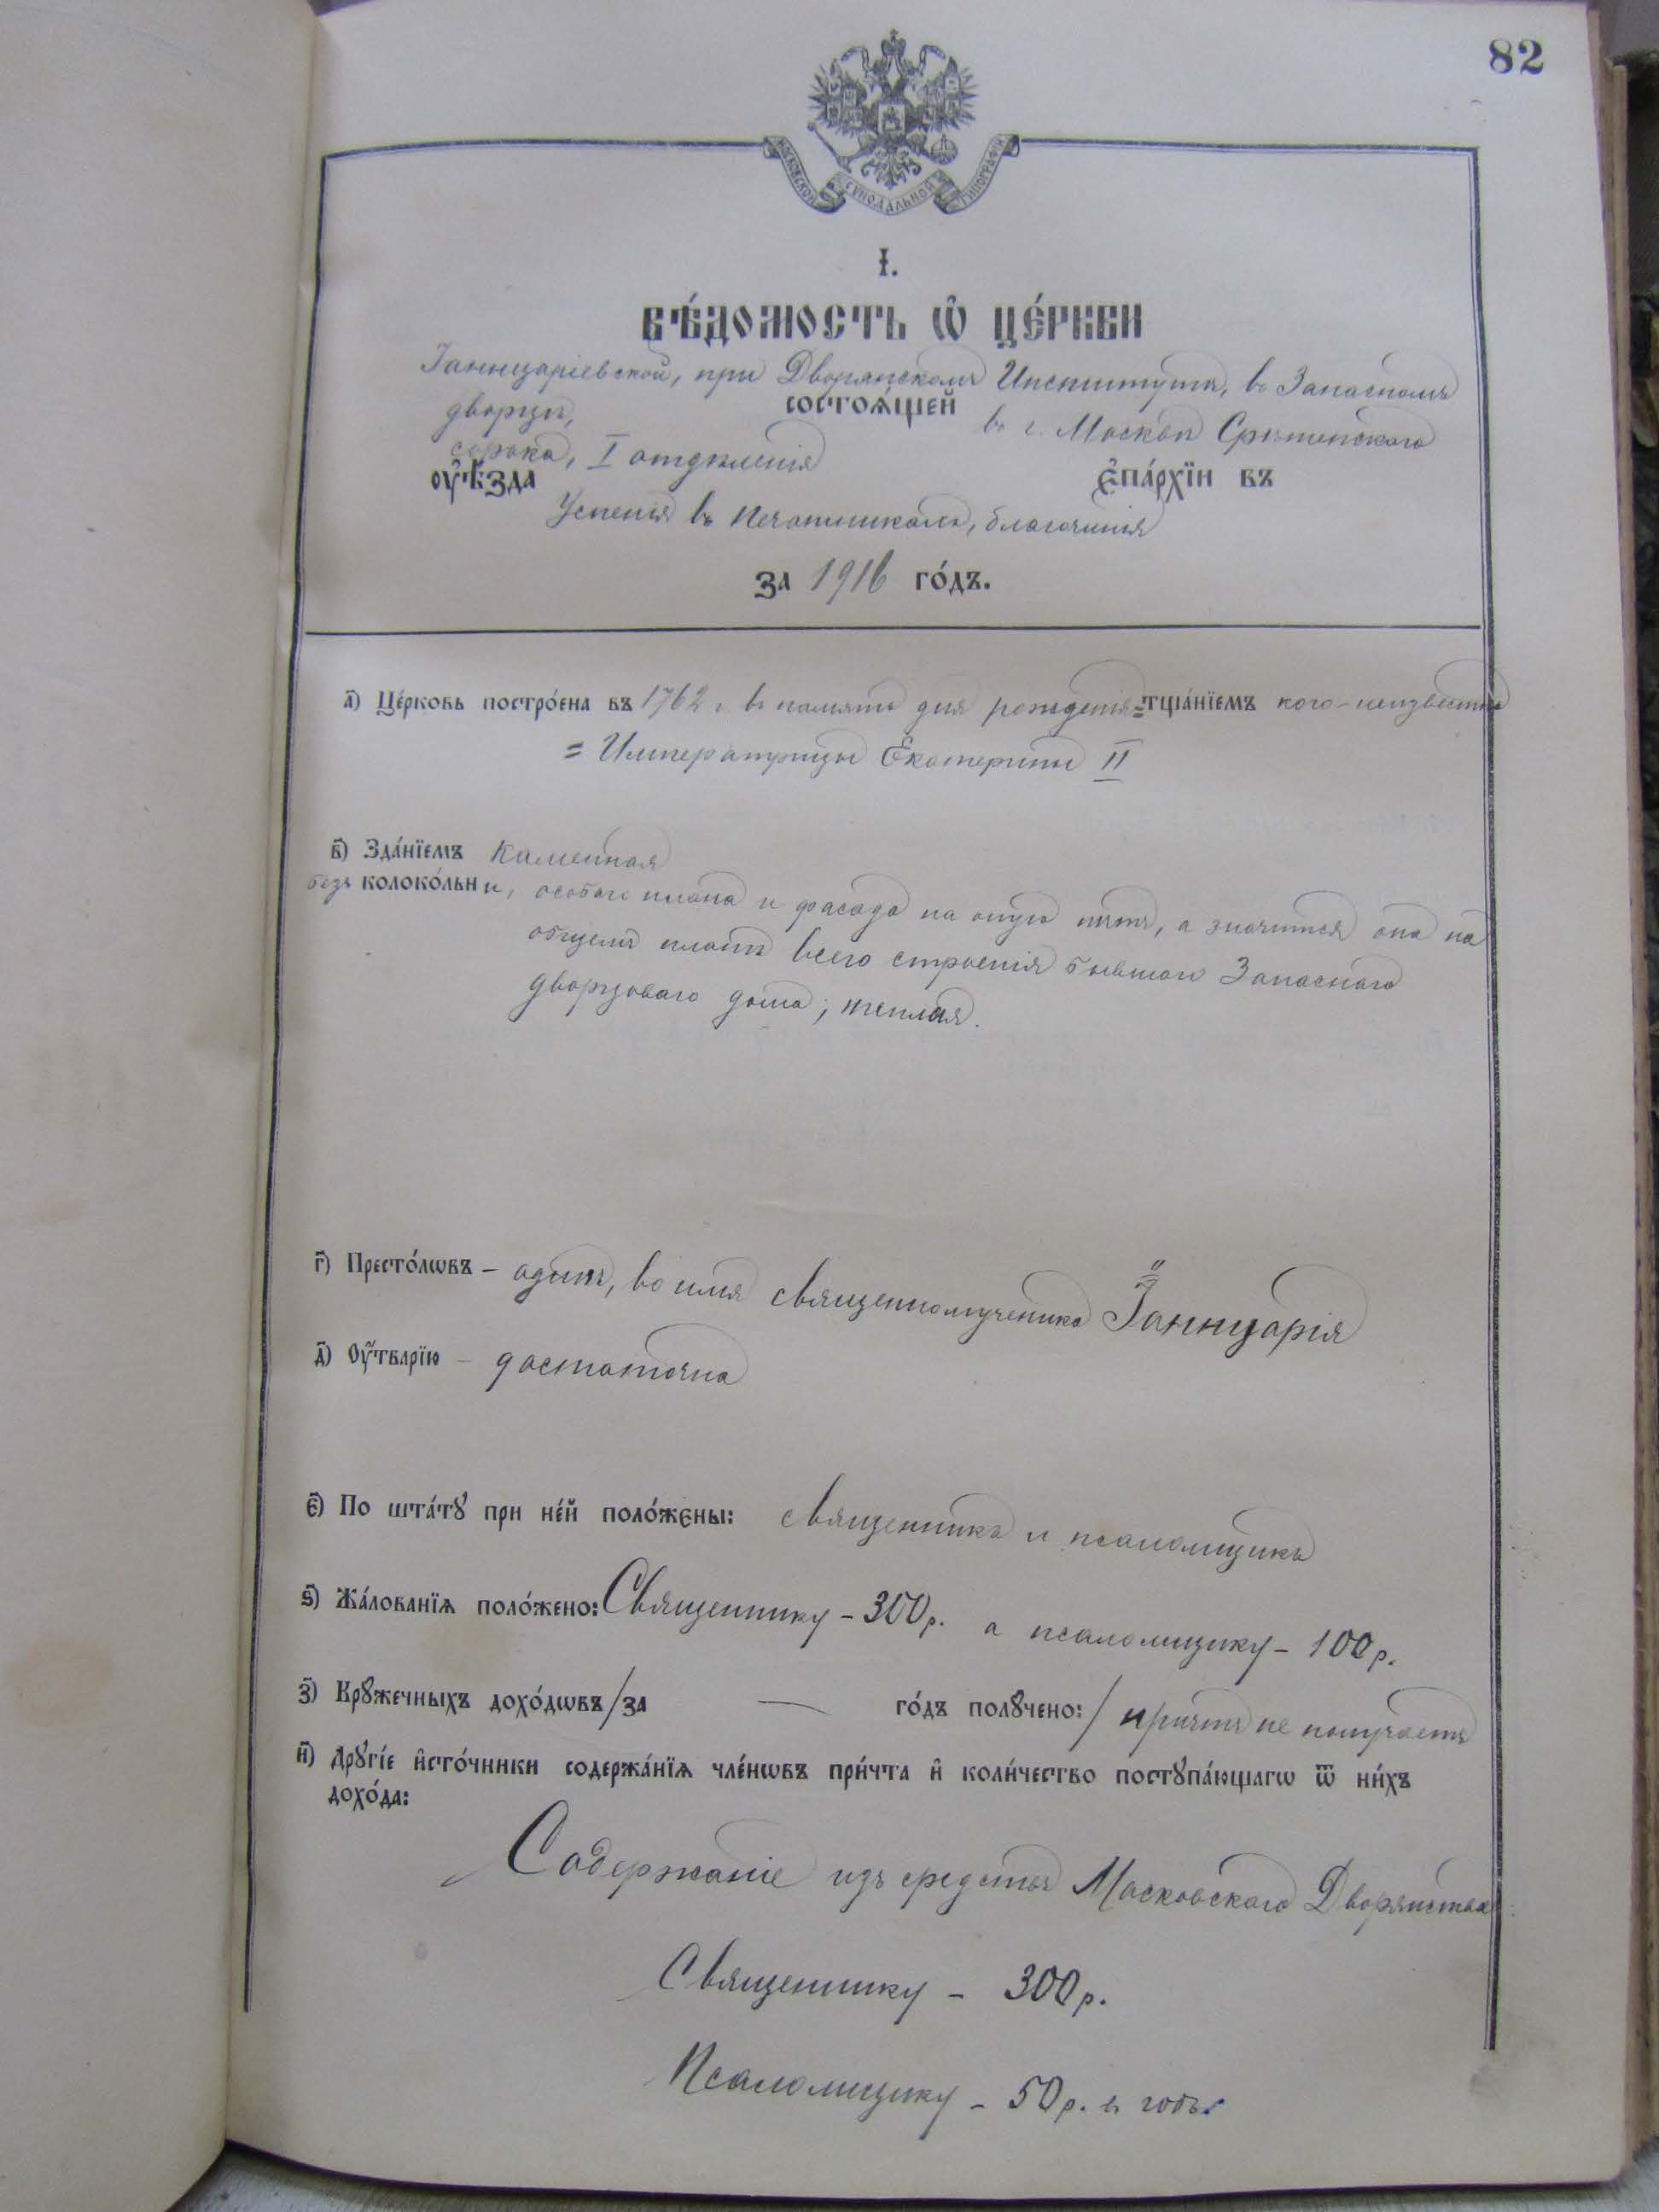 82
МОСКОВСКОЙ СѴНОДАЛЬНОЙ ТИПОГРАФІИ
І.
ВѢ́ДОМОСТЬ Ѡ҆ ЦЕ́РКВИ
Іаннуаріевской, при Дворянскомъ Институтѣ, въ Запасномъ
дворцѣ, состоѧ́щей въ г. Москвѣ Срѣтенскаго
сорока, I отдѣленія
ᲂу҆ѣ́зда є҆па́рхїи въ
Успенія въ Печатникахъ, благочинія
за 1916 го́дъ.
а҃) Це́рковь постро́ена въ 1762 г. въ память дня рожденія= тща́нїемъ кого-неизвестно
= Императрицы Екатерины II
в҃) Зда́нїемъ каменная
безъ колоко́льни, особаго плана и фасада на оную нѣтъ, а значится она на
общемъ планѣ всего строенія бывшаго Запаснаго
дворцоваго дома; теплая.
г҃) Престо́лѡвъ – одинъ, во имя священномученика Іаннуарія
д҃) Оу҆́тварїю – достаточна
є҃) По шта́тꙋ при не́й поло́жены: священникъ и псаломщикъ
ѕ҃) Жа́лованїѧ поло́жено: Священнику – 300 р. а псаломщику – 100 р.
з҃) Крꙋжечныхъ дохо́дѡвъ /за — го́дъ полꙋчено:/ причтъ не получаетъ
и҃) Дрꙋгі́е и҆сто́чники содержа́нїѧ чле́нѡвъ при́чта и҆ коли́чество постꙋпа́ющагѡ ѿ ни́хъ
дохо́да:
Содержаніе изъ средствъ Московскаго Дворянства:
Священнику – 300 р.
Псаломщику – 50 р. въ годъ.